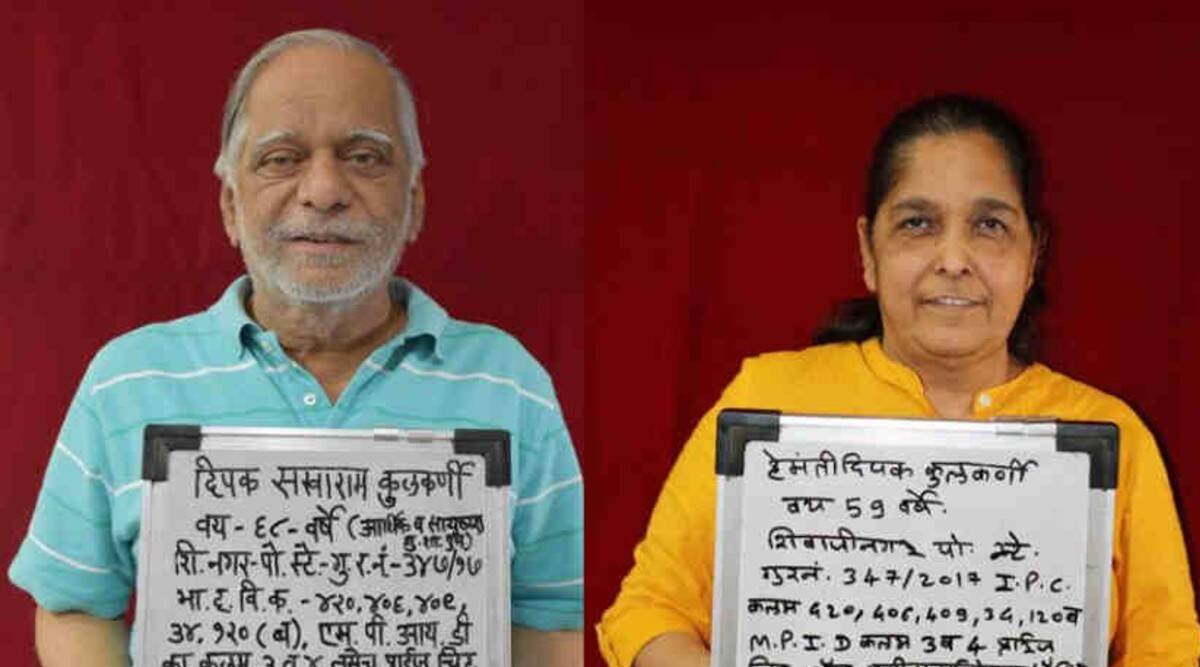 दिपक सखाराम कुलकर्णी
वय - ६८ - वर्षे (आर्थिक व सायबर
गु. शा. पुणे)
शि. नगर - पो. स्टे. - गु. र. नं. - ३४७/१७
भा. द. वि. क. - ४२०, ४०६, ४०९,
३४, १२० (ब), एम. पी. आय. डी
का कलम ३ व ४ तसेच प्राईज चिट
हेमंती दिपक कुलकर्णी
वय 59 वर्षे.
शिवाजीनगर पो. स्टे.
गुरनं. 347/2017 I.P.C.
कलम 420, 406, 409, 34, 120ब
M.P.I.D कलम 3 व 4 प्राईज